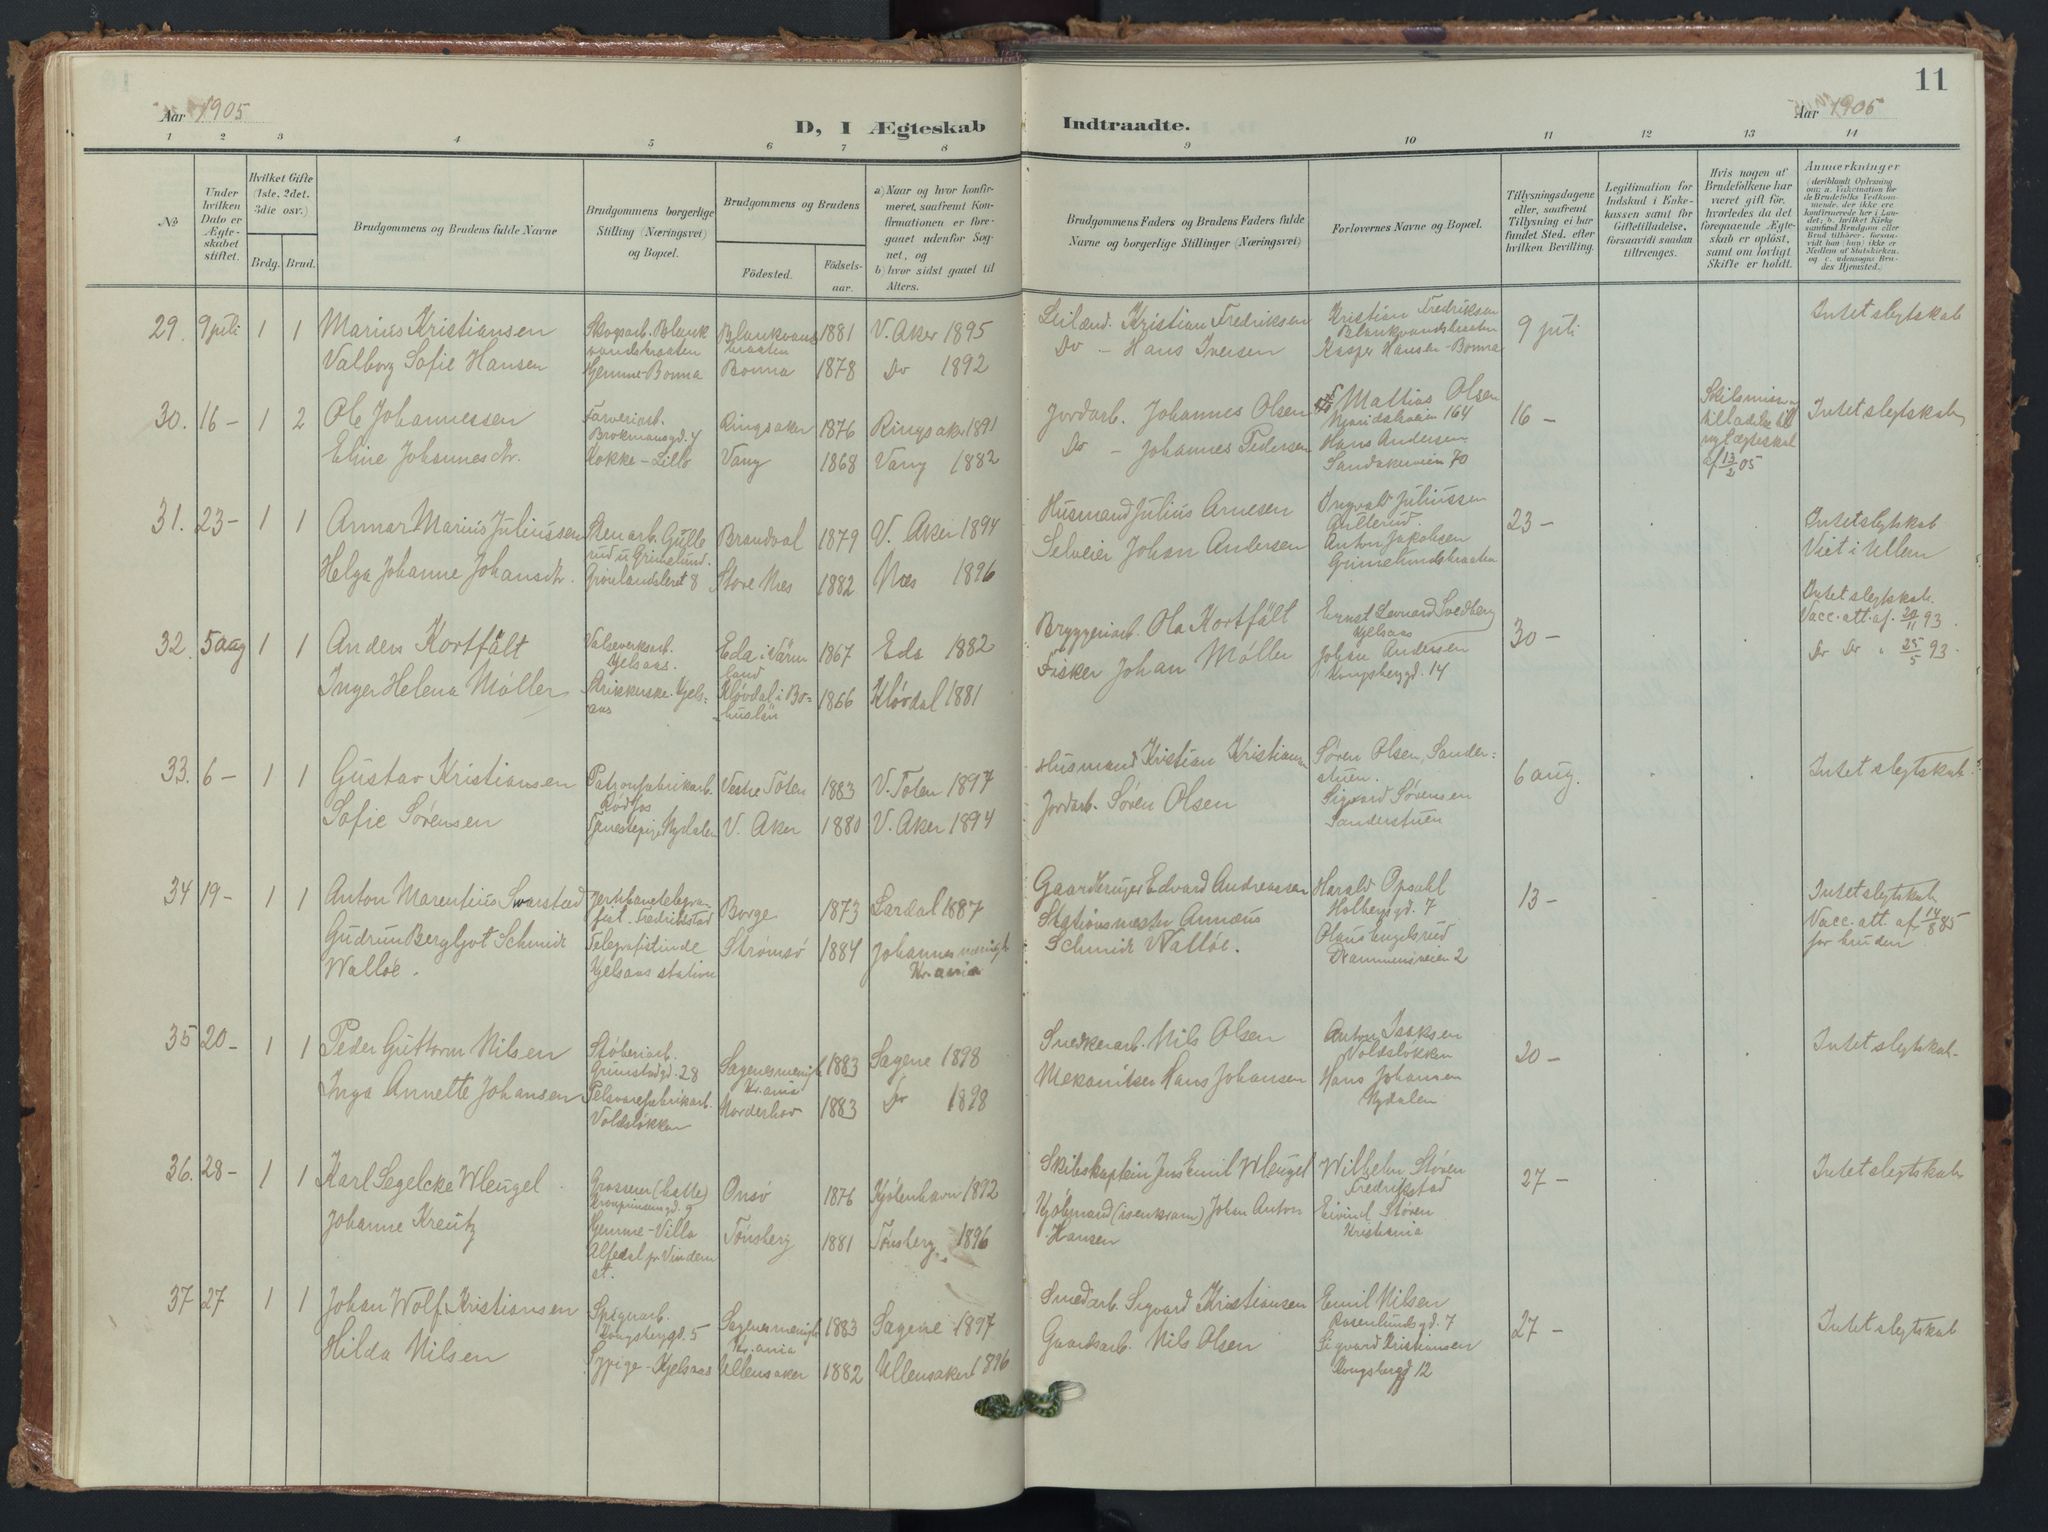 11
Aar 1905
Aar 1905
D, I Ægteskab
Indtraadte.
1 2 3 4 5 6 7 8 9 10 11 12 13 14
No
Under hvilken Dato er Ægteskabet stiftet.
Hvilket Gifte (1ste, 2det, 3die osv.)
Brdg. Brud.
Brudgommens og Brudens fulde Navne
Brudgommens borgerlige Stilling (Næringsvei) og Bopæl.
Brudgommens og Brudens
Födested.
Födsels-aar.
a) Naar og hvor konfirmeret, saafremt Konfirmationen er foregaaet udenfor Sognet, og
b) hvor sidst gaaet til Alters.
Brudgommens Faders og Brudens Faders fulde Navne og borgerlige Stillinger (Næringsvei)
Forlovernes Navne og Bopæl.
Tillysningsdagene eller, saafremt Tillysning ei har fundet Sted, efter hvilken Bevilling.
Legitimation for Indskud i Enkekassen samt for Giftetilladelse, forsaavidt saadan tiltrænges.
Hvis nogen af Brudefolkene har været gift för, hvorledes da det foregaaende Ægteskab er oplöst, samt om lovligt Skifte er holdt.
Anmærkninger
29. 9 juli 1 1
Marius Kristiansen
Valborg Sofie Hansen
Skogsarb. Blankvandsbraaten
Hjemme-Bonna
Blankvandsbraaten 1881 V. Aker 1895
Bonna 1878 Do 1892
Leilænd. Kristian Fredriksen
Do - Hans Iversen
Kristian Fredriksen
Blankvandsbraaten
Kasper Hansen-Bonna
9 juli
Intet slegtskab
30. 16- 1 2
Ole Johannessen
Eline Johannesdtr.
Farveriarb.
Brokmansgd. 4
Kokke-Lillo
Ringsaker 1876 Ringsaker 1891
Vang 1868 Vang 1882
Jordarb. Johannes Olsen
Do - Johannes Pedersen
Mattias Olsen
Maridalsveien 164
Hans Andersen
Sandakerveien 70
16-
Skilsmisse og
tilladelse til
nyt ægteskab
af 13/2 05
Intet slegtskab
31. 23- 1 1
Armar Marius Juliussen
Helga Johanne Johansdtr.
Stenarb. Gullerud u. Grimelund.
Grønlandsleret 8
Brandval 1879 V. Aker 1894
Store Næs 1882 Næs 1896
Husmand Julius Arnesen
Selveier Johan Andersen
Ingvald Juliussen
Gullerud.
Anton Jakobsen
Grimelundsbraaten
23-
Intet slegtskab
Viet i Ullern
32. 5 aug 1 1
Anders Kortfält
Inger Helena Møller
Valseverksarb.
Kjelsaas.
Strikkerske. Kjelsaas
Eda i Värmland 1867 Eda 1882
Kløvdal i Bohuslän 1866 Kløvdal 1881
Bryggeriarb. Ola Kortfält
Fisker Johan Møller
Ernst Leonard Svedberg
Kjelsaas
Johan Andersen
Kongsberggd. 14
30-
Intet slegtskab.
Vacc. att. af. 20/11 93.
Do Do " 25/5 93.
33. 6- 1 1
Gustav Kristiansen
Sofie Sørensen
Patronfabrikarb.
Rødfos
Tjenestepige Nydalen
Vestre Toten 1883 V. Toten 1897
V. Aker 1880 V. Aker 1894
Husmand Kristian Kristiansen
Jordarb. Søren Olsen
Søren Olsen, Sanderstuen.
Sigvard Sørensen
Sanderstuen
6 aug.
Intet slegtskab.
34 19- 1 1
Anton Marentius Svarstad
Gudrun Bergljot Schmidt
Walløe.
Jernbanetelegrafist. Fredrikstad
Telegrafistinde
Kjelsaas station
Borge 1873 Lardal 1887
Strømsø 1884 Johannes menigh.
Kr.ania
Gaardbruger Edvard Andreassen
Stationsmester Annæus
Schmidt Walløe.
Harald Opsahl
Holbergsgd. 7
Olaus Engelsrud
Drammensveien 2
13-
Intet slegtskab
Vacc. att. af 14/8 85
for bruden
35 20- 1 1
Peder Guttorm Nilsen
Inga Annette Johansen
Støberiarb.
Grimstadgd. 28
Pelsvarefabrikarb.
Voldsløkken
Sagenes menigh. Kr.ania 1883 Sagene 1898
Norderhov 1883 Do 1898
Snedkerarb. Nils Olsen
Mekaniker Hans Johansen
Anton Isaksen
Voldsløkken
Hans Johansen
Nydalen
20-
Intet slegtskab.
36. 28- 1 1
Karl Segelcke Wleügel
Johanne Kreutz
Grosserer (hatte)
Kronprinsensgd. 9
Hjemme-Villa
Alfedal pr Vinderen
st.
Onsø 1876 Kjøbenhavn 1892
Tønsberg 1881 Tønsberg 1896
Skibskaptein Jens Emil Wleugel
Kjøbmand (isenkram) Johan Anton
Hansen
Wilhelm Støren
Fredrikstad
Eivind Støren
Kristiania
27-
Intet slegtskab
37 27 1 1
Johan Wolf Kristiansen
Hilda Nilsen
Spigerarb.
Kongsberggd. 5
Sypige-Kjelsaas
Sagenes menigh. Kr.ania 1883 Sagene 1897
Ullensaker 1882 Ullensaker 1896
Smedarb. Sigvard Kristiansen
Gaardsarb. Nils Olsen
Emil Nilsen
Rosenlundsgd. 7
Sigvard Kristiansen
Kongsbergd 12
27-
Intet slegtskab